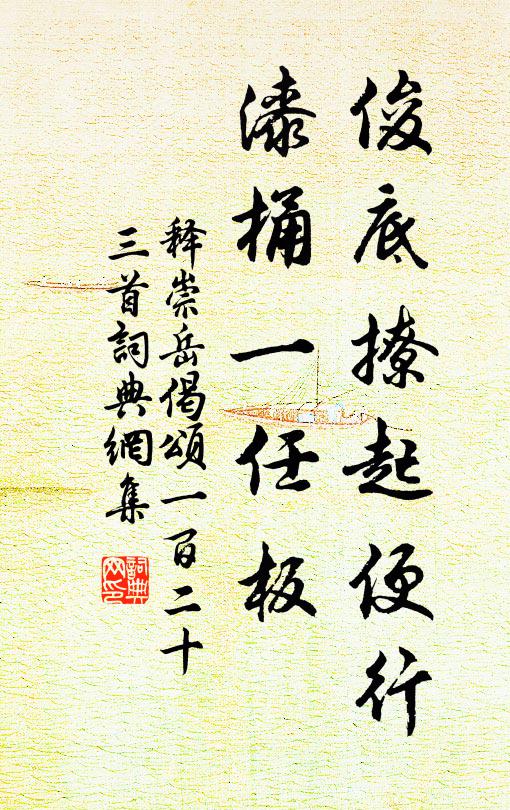 俊底撩起便行
漆桶一任板
释崇岳偈頌一百二十
三首詞典網集
詞典
网印